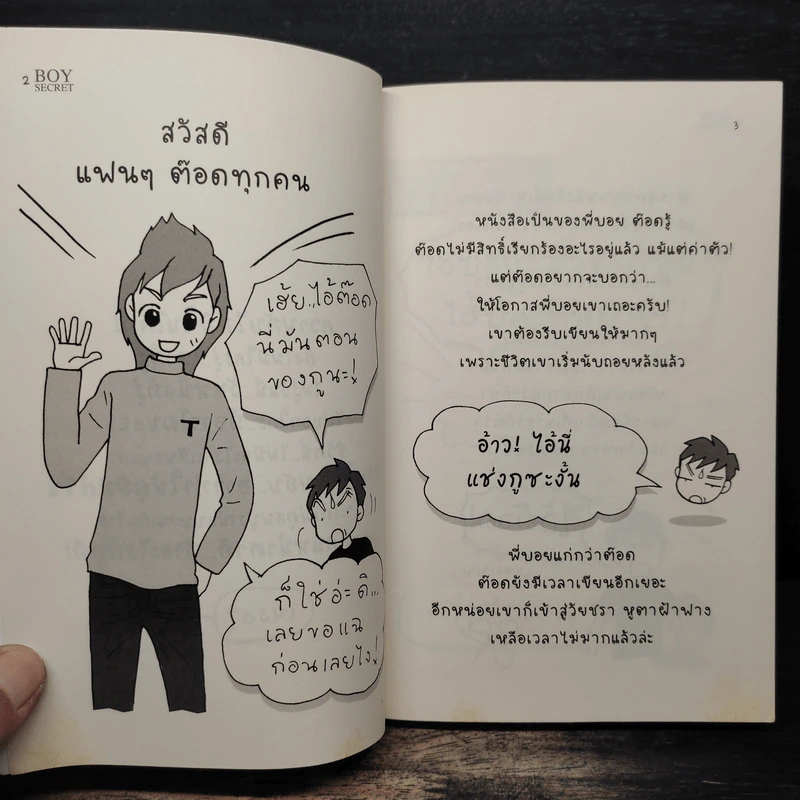 2 BOY
SECRET
สวัสดี
แฟนๆ ต๊อดทุกคน
เฮ้ย..ไอ้ต๊อด
นี่มันตอน
ของกูนะ!
T
ก็ใช่อ่ะดิ...
เลยขอแฉ
ก่อนเลยไง!
3
หนังสือเป็นของพี่บอย ต๊อดรู้
ต๊อดไม่มีสิทธิ์เรียกร้องอะไรอยู่แล้ว แม้แต่ค่าตัว!
แต่ต๊อดอยากจะบอกว่า...
ให้โอกาสพี่บอยเขาเถอะครับ!
เขาต้องรีบเขียนให้มากๆ
เพราะชีวิตเขาเริ่มนับถอยหลังแล้ว
อ้าว! ไอ้นี่
แช่งกูซะงั้น
พี่บอยแก่กว่าต๊อด
ต๊อดยังมีเวลาเขียนอีกเยอะ
อีกหน่อยเขาก็เข้าสู่วัยชรา หูตาฝ้าฟาง
เหลือเวลาไม่มากแล้วล่ะ